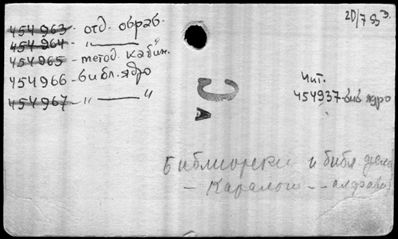 20/7 93г.
454963 - отд. обраб.
454964 - " — "
454965 - метод. кабин.
454966 - библ. ядро
454967 " — "
Чит.
454937 - биб ядро
Библиотеки и библ дело
- Каталоги -- алфавит